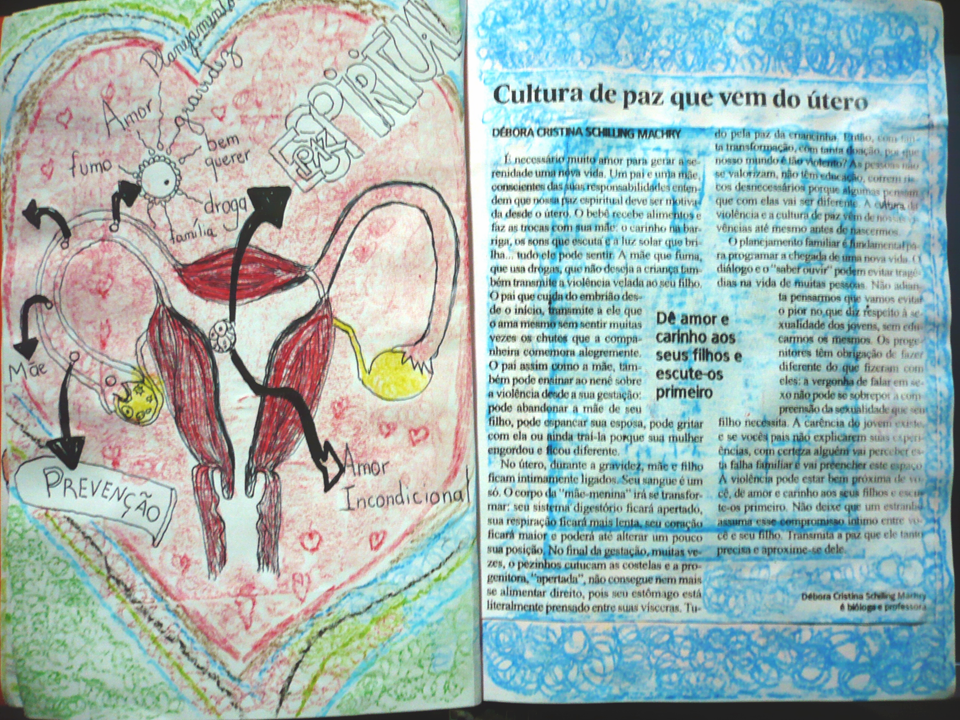 Planejamento
gravidez
Amor
fumo
bem
querer
droga
família
PAZ
ESPIRITUAL
Mãe
PREVENÇÃO
Amor
Incondicional
Cultura de paz que vem do útero
DÉBORA CRISTINA SCHILLING MACHRY
É necessário muito amor para gerar a se-
renidade uma nova vida. Um pai e uma mãe,
conscientes das suas responsabilidades enten-
dem que nosso paz espiritual deve ser motiva-
da desde o útero. O bebê recebe alimentos e
faz as trocas com sua mãe: o carinho na bar-
riga, os sons que escuta e a luz solar que bri-
lha... tudo ele pode sentir. A mãe que fuma,
que usa drogas, que não deseja a criança tam-
bém transmite a violência velada ao seu filho.
O pai que cuida do embrião des-
de o início, transmite a ele que
o ama mesmo sem sentir muitas
vezes os chutes que a compa-
nheira comemora alegremente.
O pai assim como a mãe, tam-
bém pode ensinar ao nenê sobre
a violência desde a sua gestação:
pode abandonar a mãe de seu
filho, pode espancar sua esposa, pode gritar
com ela ou ainda traí-la porque sua mulher
engordou e ficou diferente.
No útero, durante a gravidez, mãe e filho
ficam intimamente ligados. Seu sangue é um
só. O corpo da "mãe-menina" irá se transfor-
mar: seu sistema digestório ficará apertado,
sua respiração ficará mais lenta, seu coração
ficará maior e poderá até alterar um pouco
sua posição. No final da gestação, muitas ve-
zes, o pezinhos cutucam as costelas e a pro-
genitora, "apertada", não consegue nem mais
se alimentar direito, pois seu estômago está
literalmente prensado entre suas vísceras. Tu-
do pela paz da criancinha. Então, com tan-
ta transformação, com tanta doação, por que
nosso mundo é tão violento? As pessoas não
se valorizam, não têm educação, correm ris-
cos desnecessários porque algumas pensam
que com elas vai ser diferente. A cultura da
violência e a cultura de paz vêm de nossas vi-
vências até mesmo antes de nascermos.
O planejamento familiar é fundamental pa-
ra programar a chegada de uma nova vida. O
diálogo e o "saber ouvir" podem evitar tragé-
dias na vida de muitas pessoas. Não adian-
ta pensarmos que vamos evitar
o pior no que diz respeito à se-
xualidade dos jovens, sem edu-
carmos os mesmos. Os proge-
nitores têm obrigação de fazer
diferente do que fizeram com
eles: a vergonha de falar em se-
xo não pode se sobrepor a com-
preensão da sexualidade que seu
filho necessita. A carência do jovem existe,
e se vocês pais não explicarem suas experi-
ências, com certeza alguém vai perceber es-
ta falha familiar e vai preencher este espaço.
A violência pode estar bem próxima de vo-
cê, de amor e carinho aos seus filhos e escu-
te-os primeiro. Não deixe que um estranho
assuma esse compromisso íntimo entre vo-
cê e seu filho. Transmita a paz que ele tanto
precisa e aproxime-se dele.
Dê amor e
carinho aos
seus filhos e
escute-os
primeiro
Débora Cristina Schilling Machry
é bióloga e professora